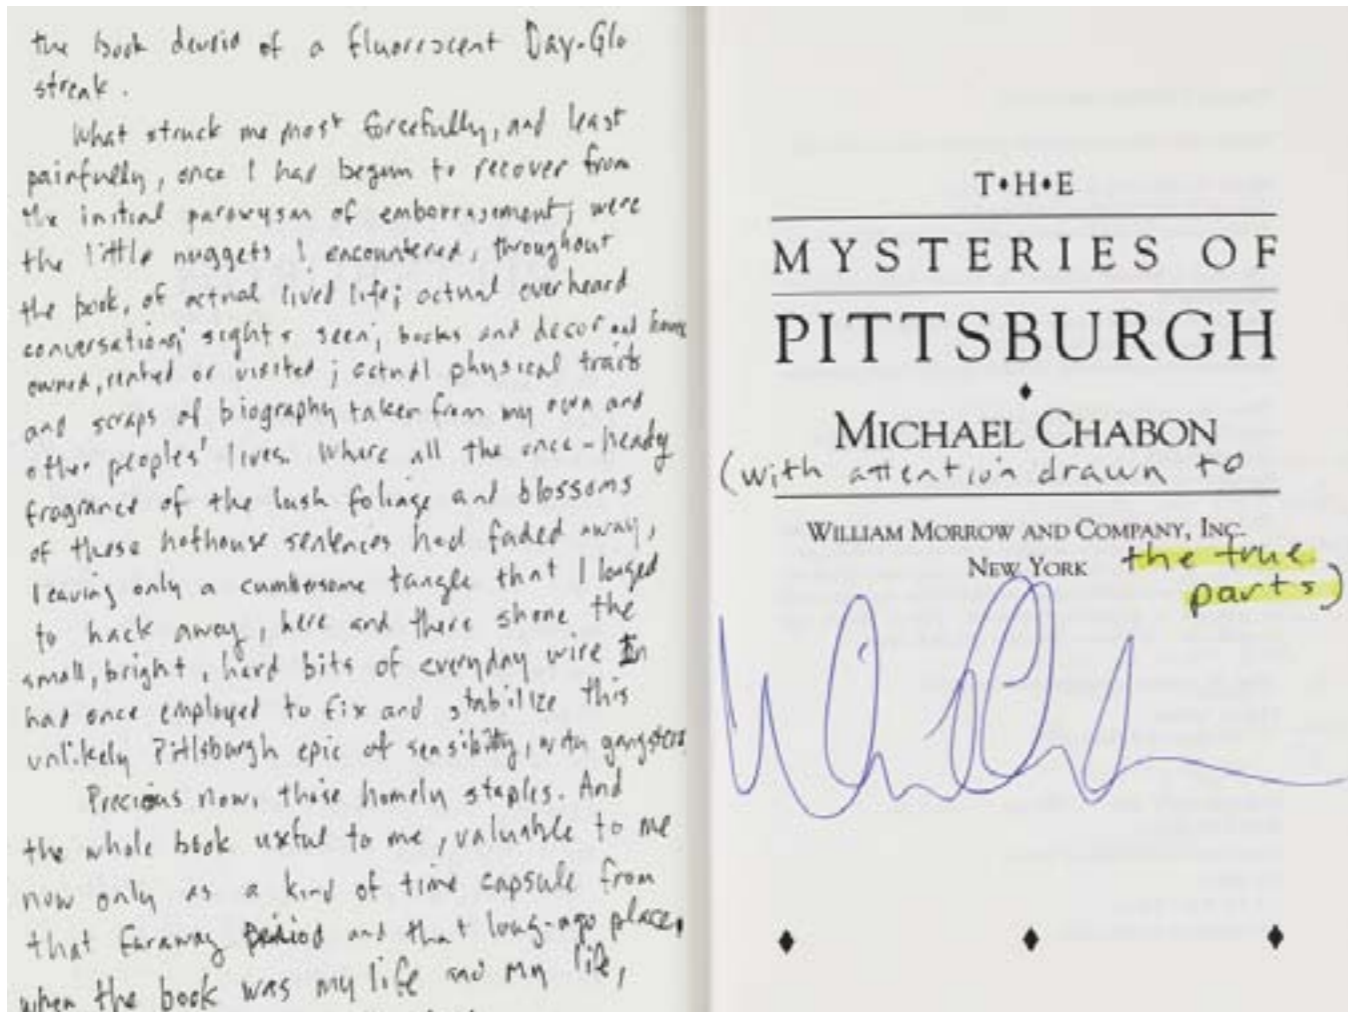 the book devoid of a fluorescent Day-Glo
streak.
What struck me most forcefully, and least
painfully, once I had begun to recover from
the initial paroxysm of embarrasment, were
the little nuggets I encountered, throughout
the book, of actual lived life; actual overheard
conversations; sights seen; books and decor and
owned, rented or visited; actual physical traits
and scraps of biography taken from my own and
other peoples' lives. Where all the once-heady
fragrance of the lush foliage and blossoms
of those hothouse sentences had faded away,
leaving only a cumbersome tangle that I longed
to hack away, here and there shone the
small, bright, hard bits of everyday wire I
had once employed to fix and stabilize this
unlikely Pittsburgh epic of sensibility, with gangsters
Precious now, those homely staples. And
the whole book useful to me, valuable to me
now only as a kind of time capsule from
that faraway period and that long-ago place,
when the book was my life and my life,
T•H•E
MYSTERIES OF
PITTSBURGH
MICHAEL CHABON
(with attention drawn to
WILLIAM MORROW AND COMPANY, INC.
NEW YORK
the true
parts)